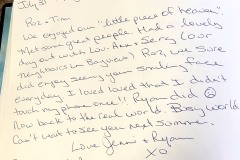 July 31
Roz + Tim
We enjoyed our "little piece of heaven".
Met some great people. Had a lovely
day out with Lou-Ann + Serg (our
neighbours in Bayview) Roz, we sure
did enjoy seeing your smiling face
everyday. I loved loved that I didn't
touch my phone once!! Ryan did ☹
Now back to the real world. Busy World.
Can't wait to see you next summer.
Love Jenn + Ryan
XO